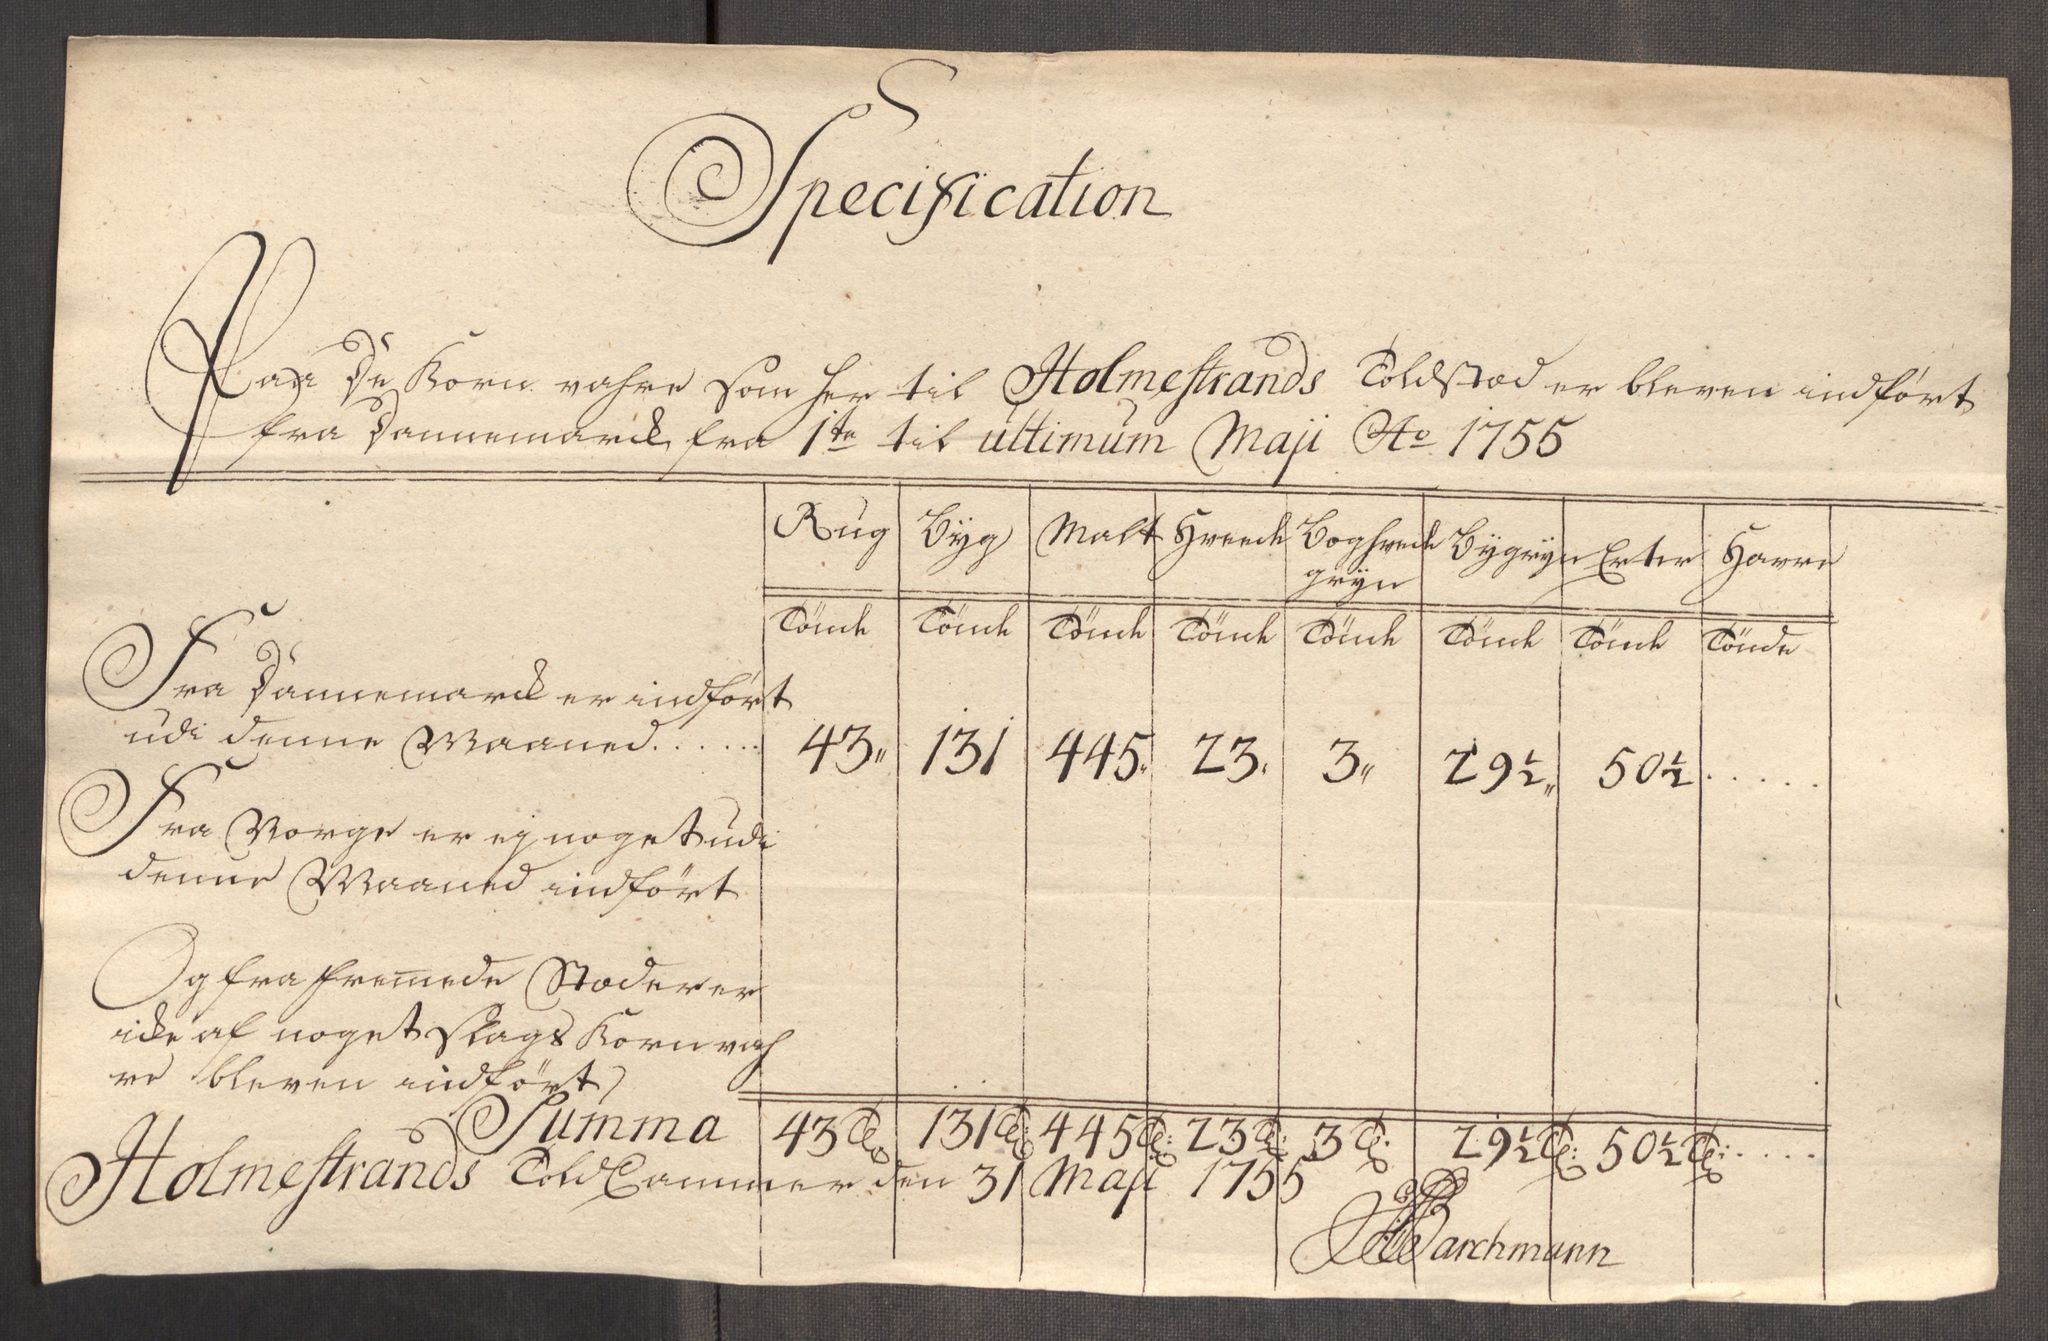 Specification
Paa De Korn vahre som her til Holmestrands Toldstæd er bleven indført
fra Dannemarck fra 1te til ultimum Maji Ao 1755
Rug Byg Malt Hvede Boghvede gryn Bygryn Erter Havre
Tönde Tönde Tönde Tönde Tönde Tönde Tönde Tönde
Fra Dannemarck er indført
udi denne Maaned...... 43" 131 445" 23" 3" 29½" 50½ .....
Fra Norge er ej noget udi
denne Maaned indført
Og fra fremmede Stæder er
icke af noget Slags Kornvah
re bleven indført
Summa 43 Tr 131 Tr: 445 Tr: 23 Tr: 3 Tr: 29½ Tr: 50½ Tr: .....
Holmestrands Told Cammer den 31 Maji 1755
Barchmann